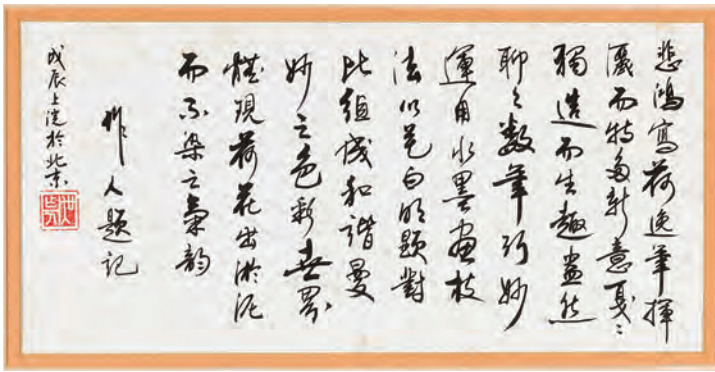 悲鴻寫荷逸筆揮
灑而特多新意戛〻
獨造而生趣盎然
聊〻數筆巧妙
運用水墨畫技
法以皂白明顯對
比組成和諧曼
妙之色彩世界
體現荷花出淤泥
而不染之氣韵
作人題記
戊辰上浣於北京